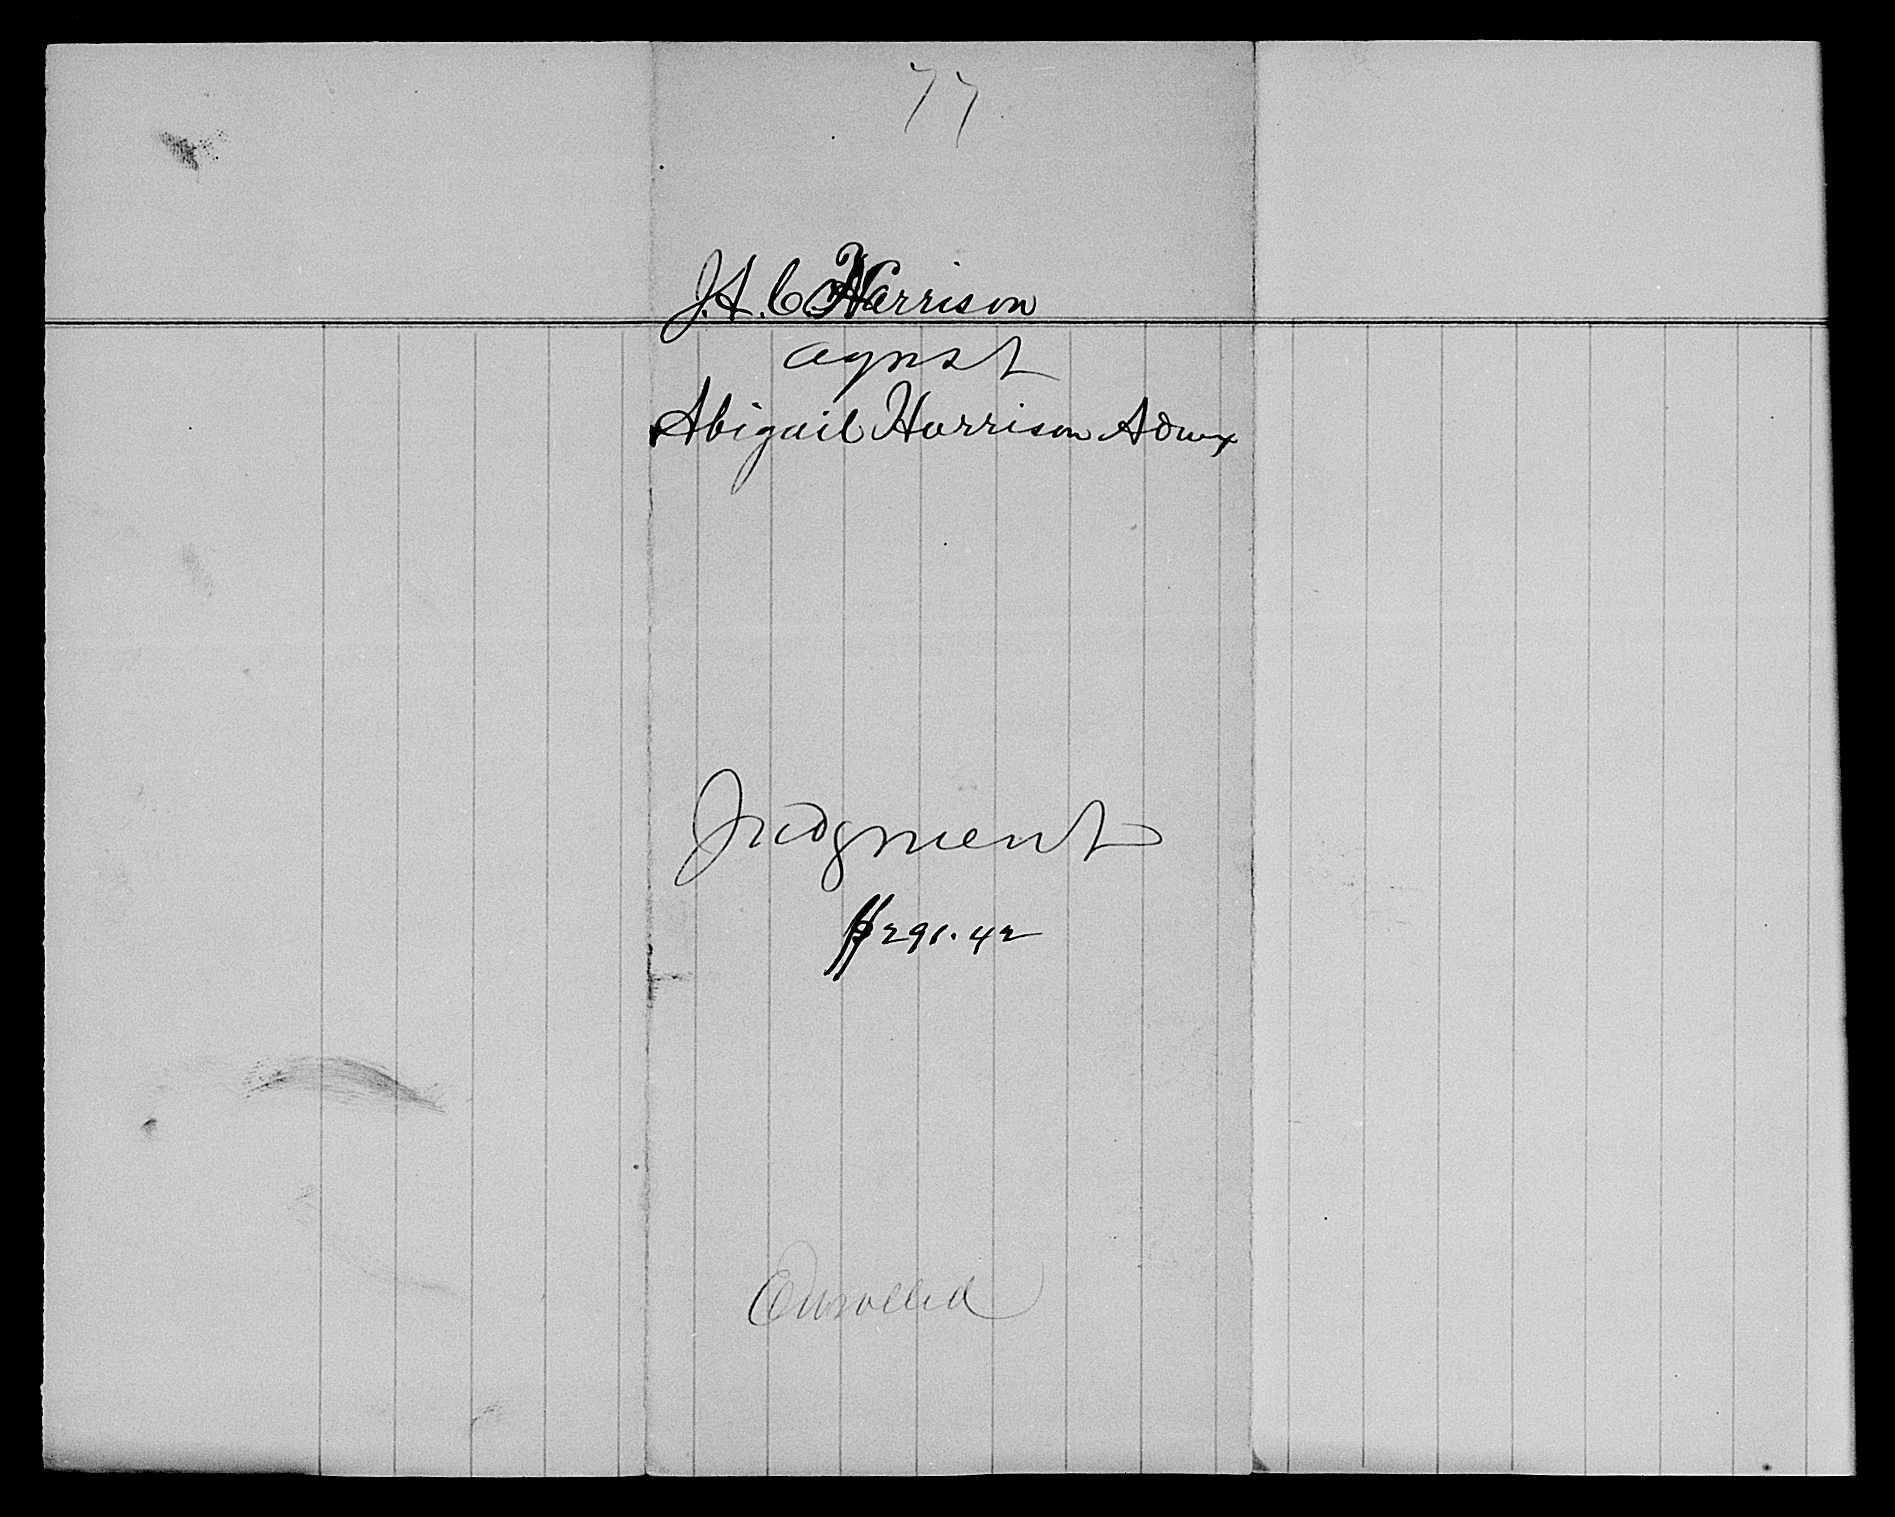 77
J. A. C. Harrison
agnst
Abigail Harrison Admx
Judgment
$291.42
Enrolled